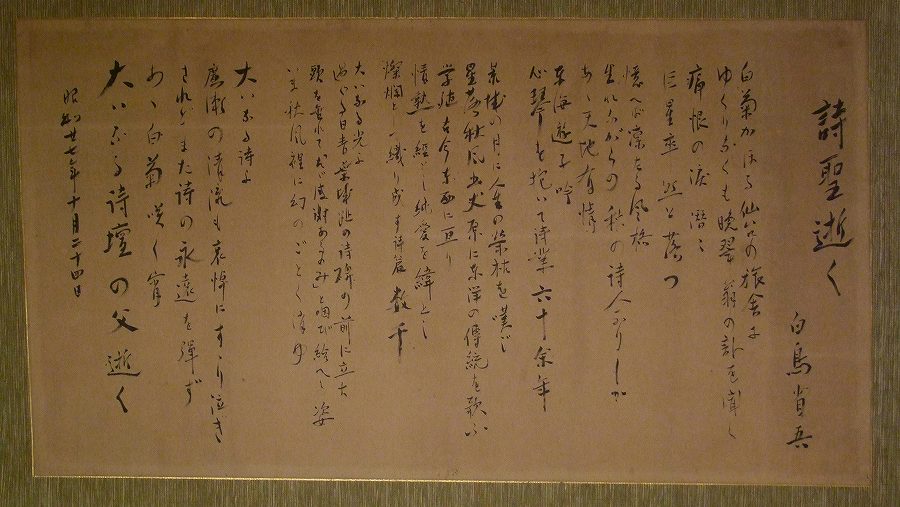 詩聖逝く
白鳥省吾
白菊かほる仙台の旅舎に
ゆくりなくも晩翠翁の訃を聞く
痛恨の涙潸々
巨星墜然と落つ
憶へば凛たる風格
生れながらの秋の詩人なりしか
あゝ天地有情
東海遊子吟
心琴を抱いて詩業六十余年
荒城の月に人生の栄枯を嘆じ
星落秋風五丈原に東洋の傳統を歌ふ
学殖古今東西に亘り
情熱を経とし純愛を緯とし
燦爛と織り成す詩篇数千
大いなる光よ
過ぐる日青葉城趾の詩碑の前に立ち
頭を垂れておゝ感謝あるのみと咽び給へし姿
いま秋風裡に幻のごとく浮ぶ
大いなる詩よ
廣瀬の清流も哀悼にすゝり泣き
されどまた詩の永遠を弾ず
あゝ白菊咲く宵
大いなる詩壇の父逝く
昭和廿七年十月二十四日